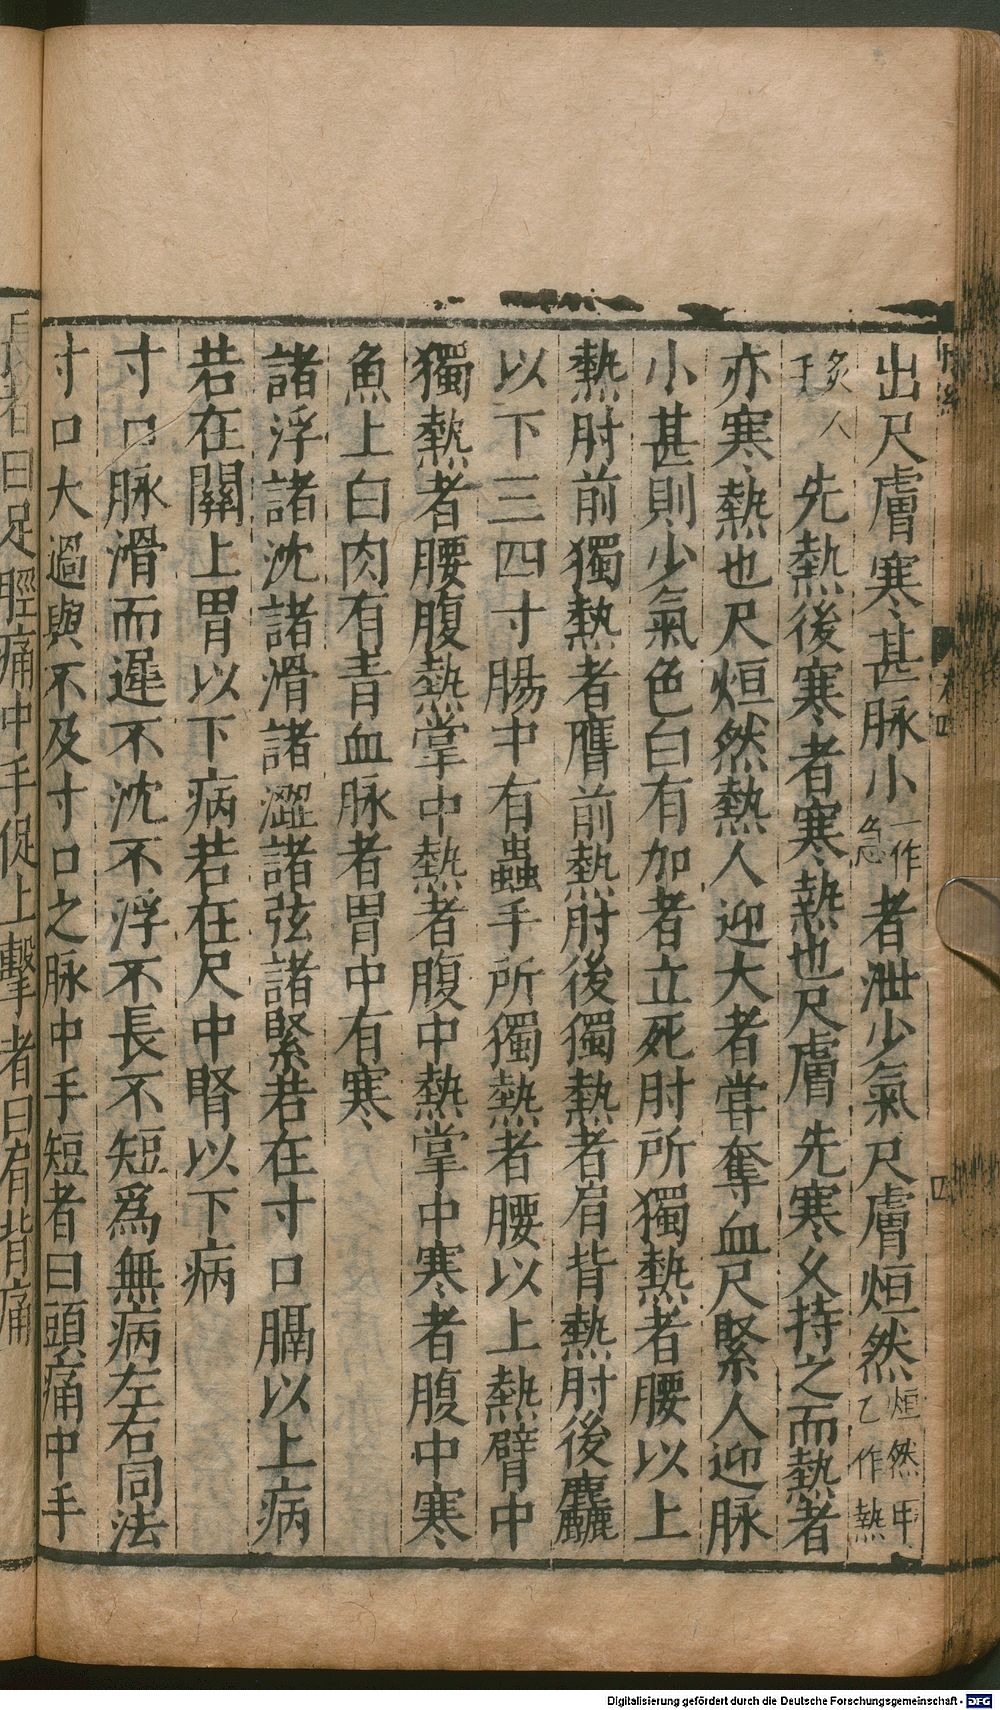 出尺膚寒甚脉小一作急者泄少氣尺膚烜然烜然甲乙作熱
炙人手先熱後寒者寒熱也尺膚先寒久持之而熱者
亦寒熱也尺烜然熱人迎大者嘗奪血尺緊人迎脉
小甚則少氣色白有加者立死肘所獨熱者腰以上
熱肘前獨熱者膺前熱肘後獨熱者肩背熱肘後麤
以下三四寸腸中有蟲手所獨熱者腰以上熱臂中
獨熱者腰腹熱掌中熱者腹中熱掌中寒者腹中寒
魚上白肉有青血脉者胃中有寒
諸浮諸沈諸滑諸澀諸弦諸緊若在寸口膈以上病
若在關上胃以下病若在尺中腎以下病
寸口脉滑而遲不沈不浮不長不短爲無病左右同法
寸口大過與不及寸口之脉中手短者曰頭痛中手
長者曰足脛痛中手促上擊者曰肩背痛
Digitalisierung gefördert durch die Deutsche Forschungsgemeinschaft - DFG